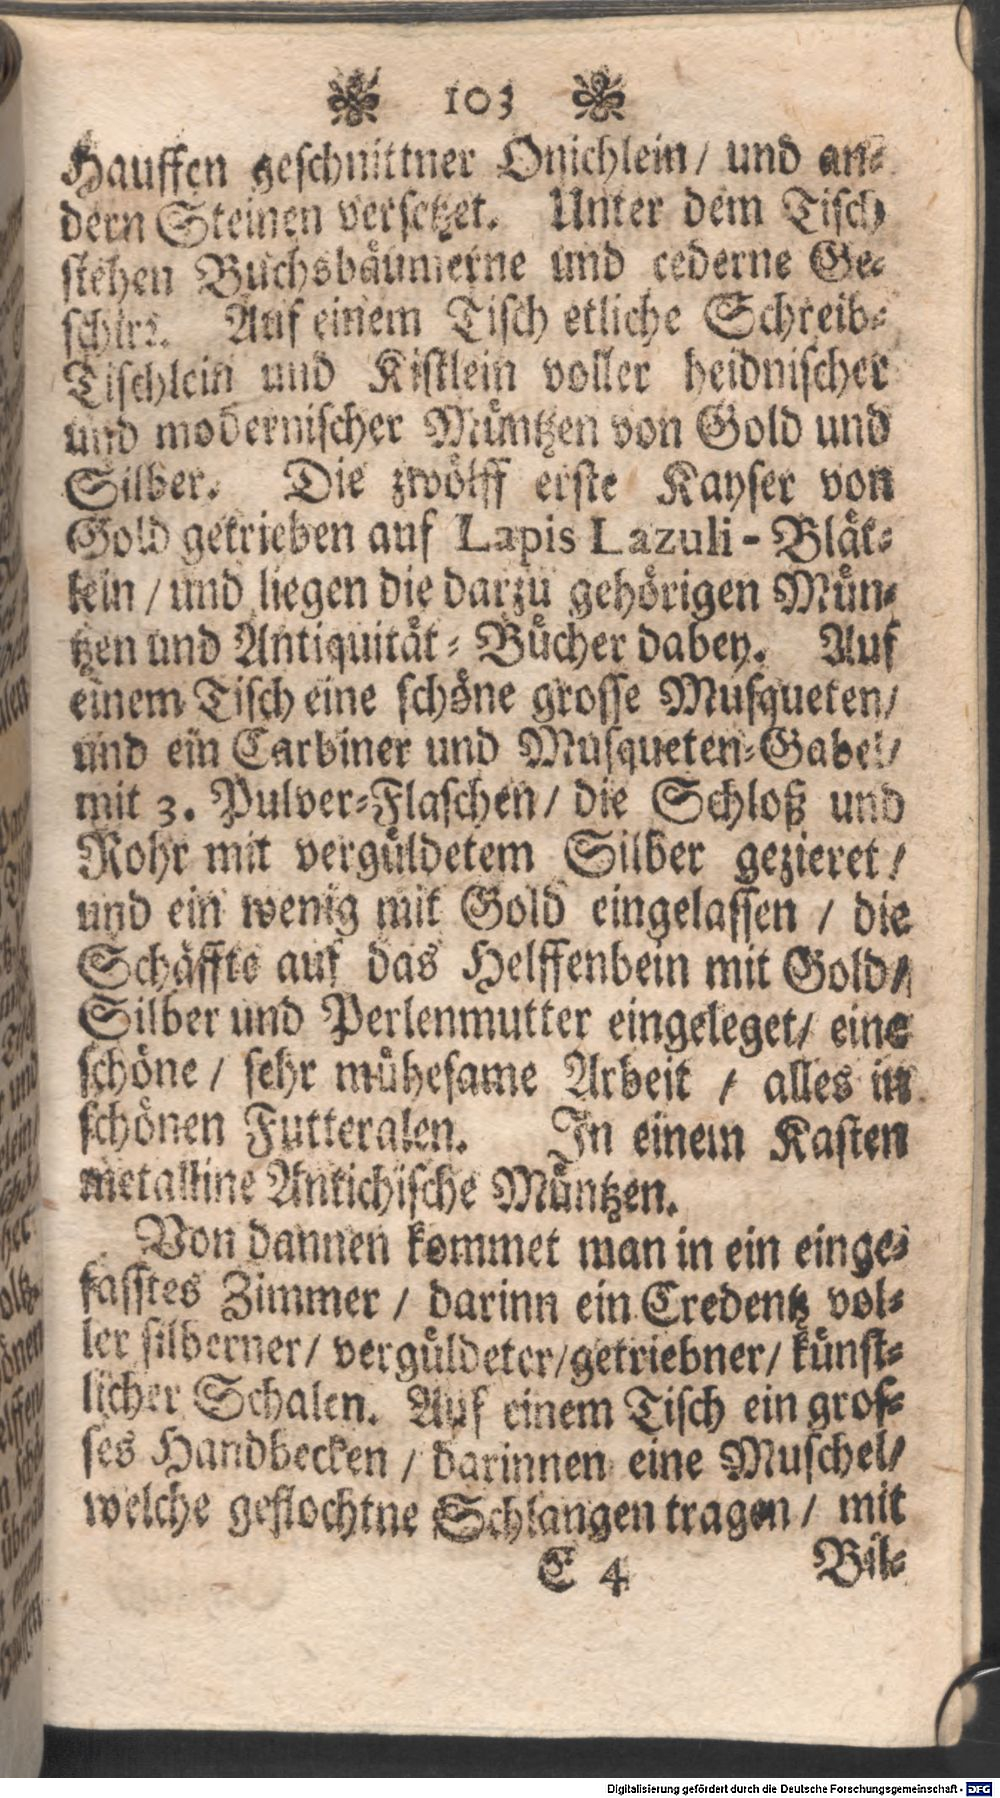 103
Hauffen geschnittner Onichlein/ und an-
dern Steinen versetzet. Unter dem Tisch
stehen Buchsbäumerne und cederne Ge-
schirr. Auf einem Tisch etliche Schreib-
Tischlein und Kistlein voller heidnischer
und modernischer Müntzen von Gold und
Silber. Die zwölff erste Kayser von
Gold getrieben auf Lapis Lazuli-Blät-
lein / und liegen die darzu gehörigen Mün-
tzen und Antiquität-Bücher dabey. Auf
einem Tisch eine schöne grosse Musqueten/
und ein Carbiner und Musqueten-Gabel/
mit 3. Pulver-Flaschen/ die Schloß und
Rohr mit vergüldetem Silber gezieret/
und ein wenig mit Gold eingelassen / die
Schäffte auf das Helffenbein mit Gold/
Silber und Perlenmutter eingeleget/ eine
schöne / sehr mühesame Arbeit / alles in
schönen Futteralen. In einem Kasten
metalline Antichische Müntzen.
Von dannen kommet man in ein einge-
fasstes Zimmer / darinn ein Credentz vol-
ler silberner/ vergüldeter/getriebner/ künst-
licher Schalen. Auf einem Tisch ein gros-
ses Handbecken / darinnen eine Muschel/
welche geflochtne Schlangen tragen / mit
E 4 Bil-
Digitalisierung gefördert durch die Deutsche Forschungsgemeinschaft - DFG